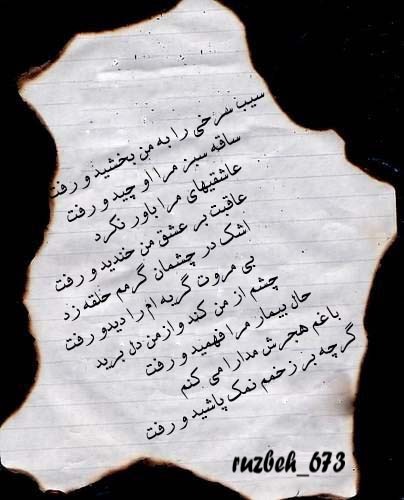 سیب سرخی را به من بخشید و رفت
ساقه سبز مرا او چید و رفت
عاشقیهای مرا باور نکرد
عاقبت بر عشق من خندید و رفت
اشک در چشمان گرمم حلقه زد
بی مروت گریه ام را دید و رفت
چشم از من کند و از من دل برید
حال بیمار مرا فهمید و رفت
با غم هجرش مدارا می کنم
گرچه بر زخمم نمک پاشید و رفت
ruzbeh_673